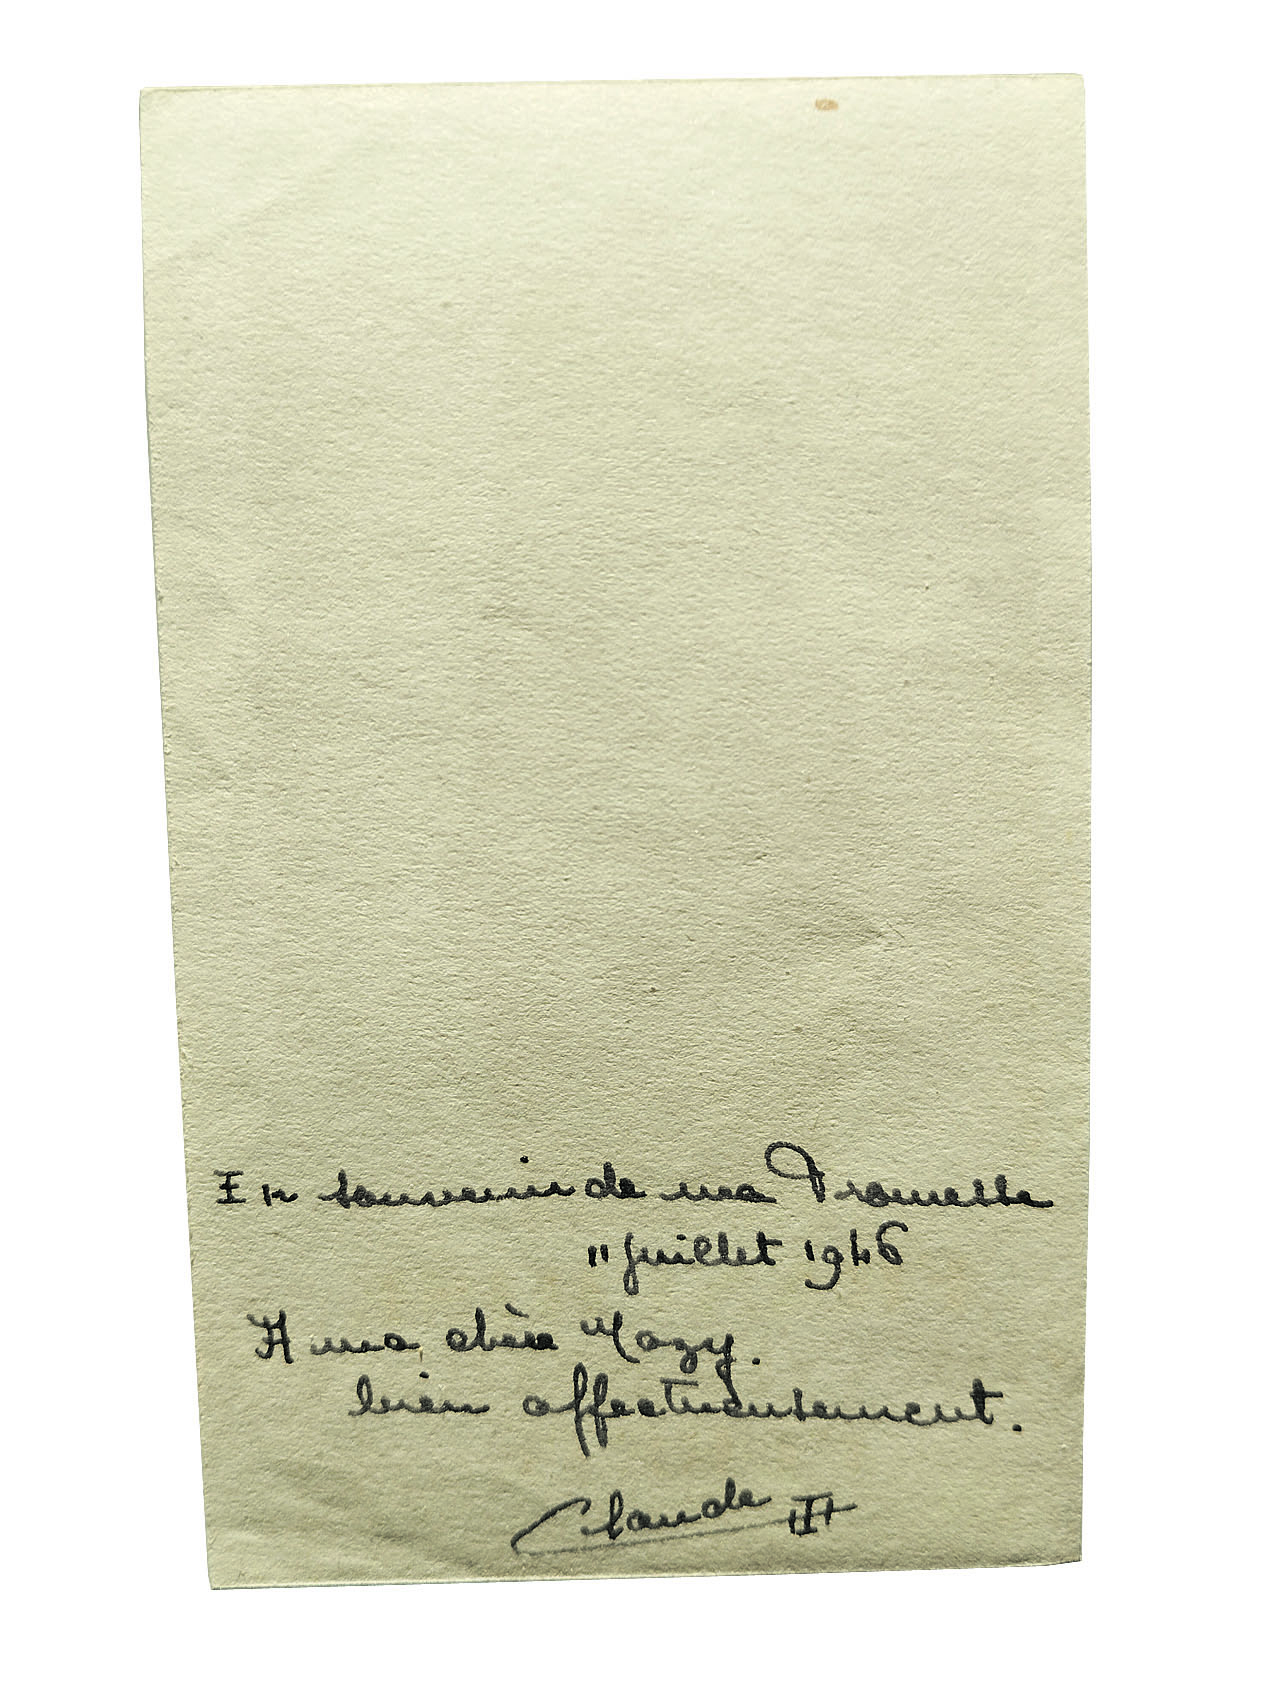 En souvenir de ma Promesse
11 juillet 1946
A ma chère Mazy.
bien affectueusement.
Claude